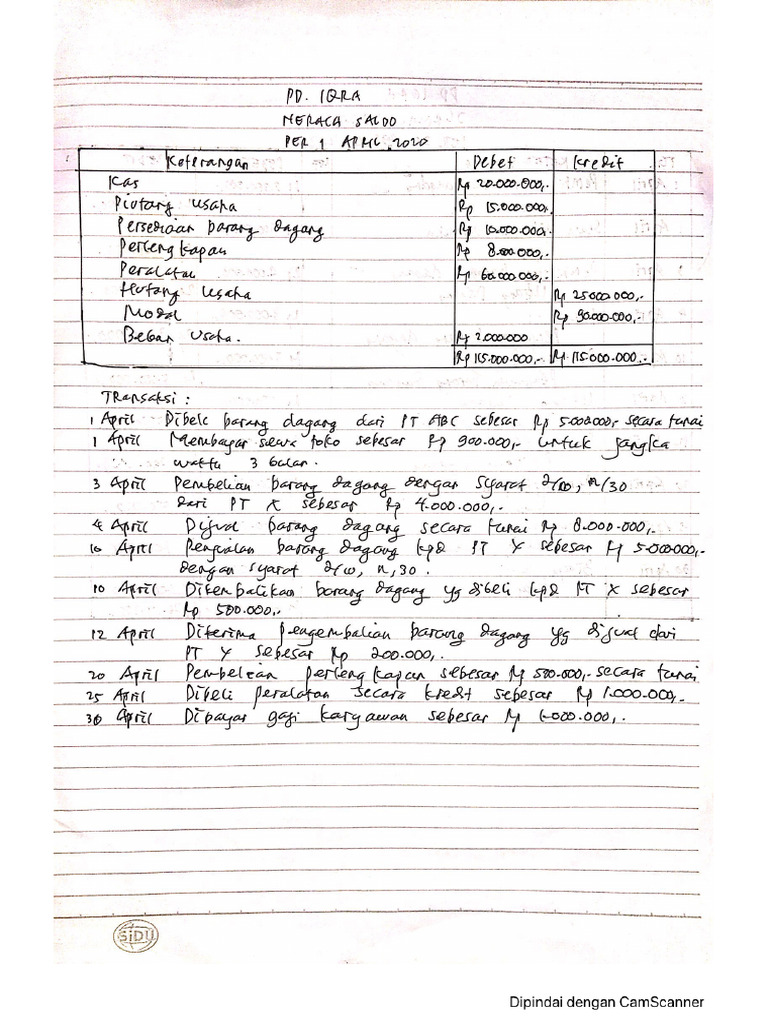 PD. IQRA
NERACA SALDO
PER 1 APRIL 2020
Keterangan Debet Kredit
Kas Rp 20.000.000,-
Piutang usaha Rp 15.000.000,-
Persediaan barang dagang Rp 10.000.000,-
Perlengkapan Rp 8.000.000,-
Peralatan Rp 60.000.000,-
Hutang Usaha Rp 25.000.000,-
Modal Rp 90.000.000,-
Beban Usaha. Rp 2.000.000
Rp 115.000.000,- Rp 115.000.000,-
Transaksi :
1 April Dibeli barang dagang dari PT ABC sebesar Rp 5.000.000,- secara tunai
1 April Membayar sewa toko sebesar Rp 900.000,- untuk jangka
waktu 3 bulan.
3 April Pembelian barang dagang dengan syarat 2/10, n/30
dari PT X sebesar Rp 4.000.000,-.
4 April Dijual barang dagang secara tunai Rp 8.000.000,-
10 April Penjualan barang dagang kpd PT Y sebesar Rp 5.000.000,-
dengan syarat 2/10, n,30.
10 April Dikembalikan barang dagang yg dibeli kpd PT X sebesar
Rp 500.000,-.
12 April Diterima pengembalian barang dagang yg dijual dari
PT Y sebesar Rp 200.000,-.
20 April Pembelian perlengkapan sebesar Rp 500.000,- secara tunai
25 April Dibeli peralatan secara kredit sebesar Rp 1.000.000,-.
30 April Dibayar gaji karyawan sebesar Rp 1.000.000,-.
SiDU
Dipindai dengan CamScanner